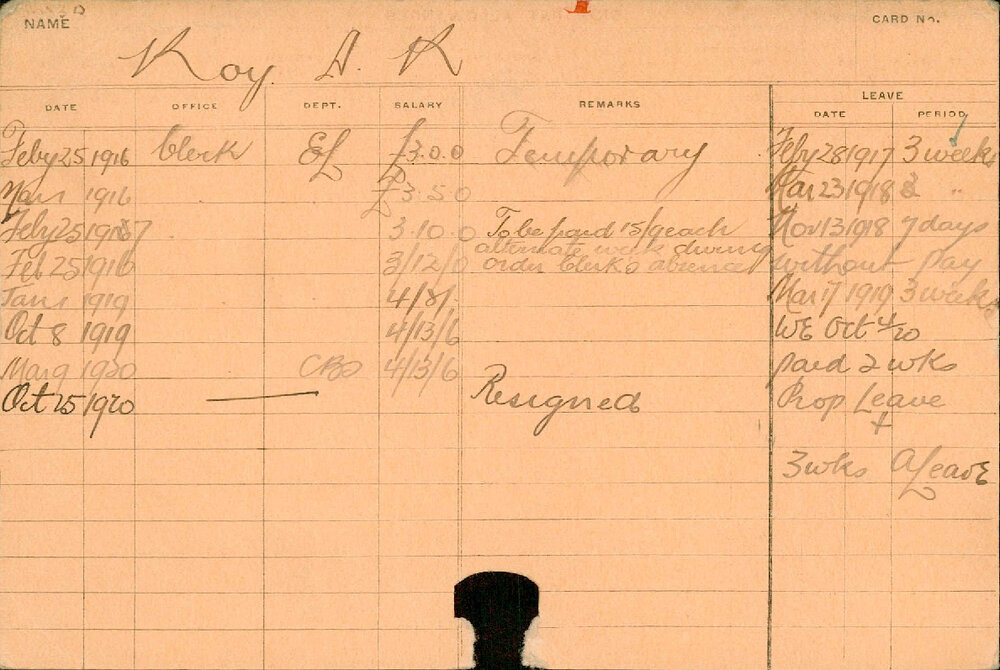 NAME
CARD No.
Roy. A. R
DATE OFFICE DEPT. SALARY REMARKS LEAVE
DATE PERIOD
Feby 25 1916 Clerk EL £3.0.0 Temporary Feby 28 1917 3 weeks
1916 £3.5.0 Mar 23 1918 3 "
Feby 25 1917 3.10.0 To be paid 15/9 each Nov 13 1918 7 days
alternate week during
Feb 25 1918 3/12/0 order Clerk's absence without pay
Jan 1 1919 4/8/- Mar 17 1919 3 weeks
Oct 8 1919 4/13/6 WE Oct 4/20
Mar 9 1920 CBO 4/13/6 paid 2 wks
Oct 25 1920 Resigned Prop Leave
+
3 wks A Leave